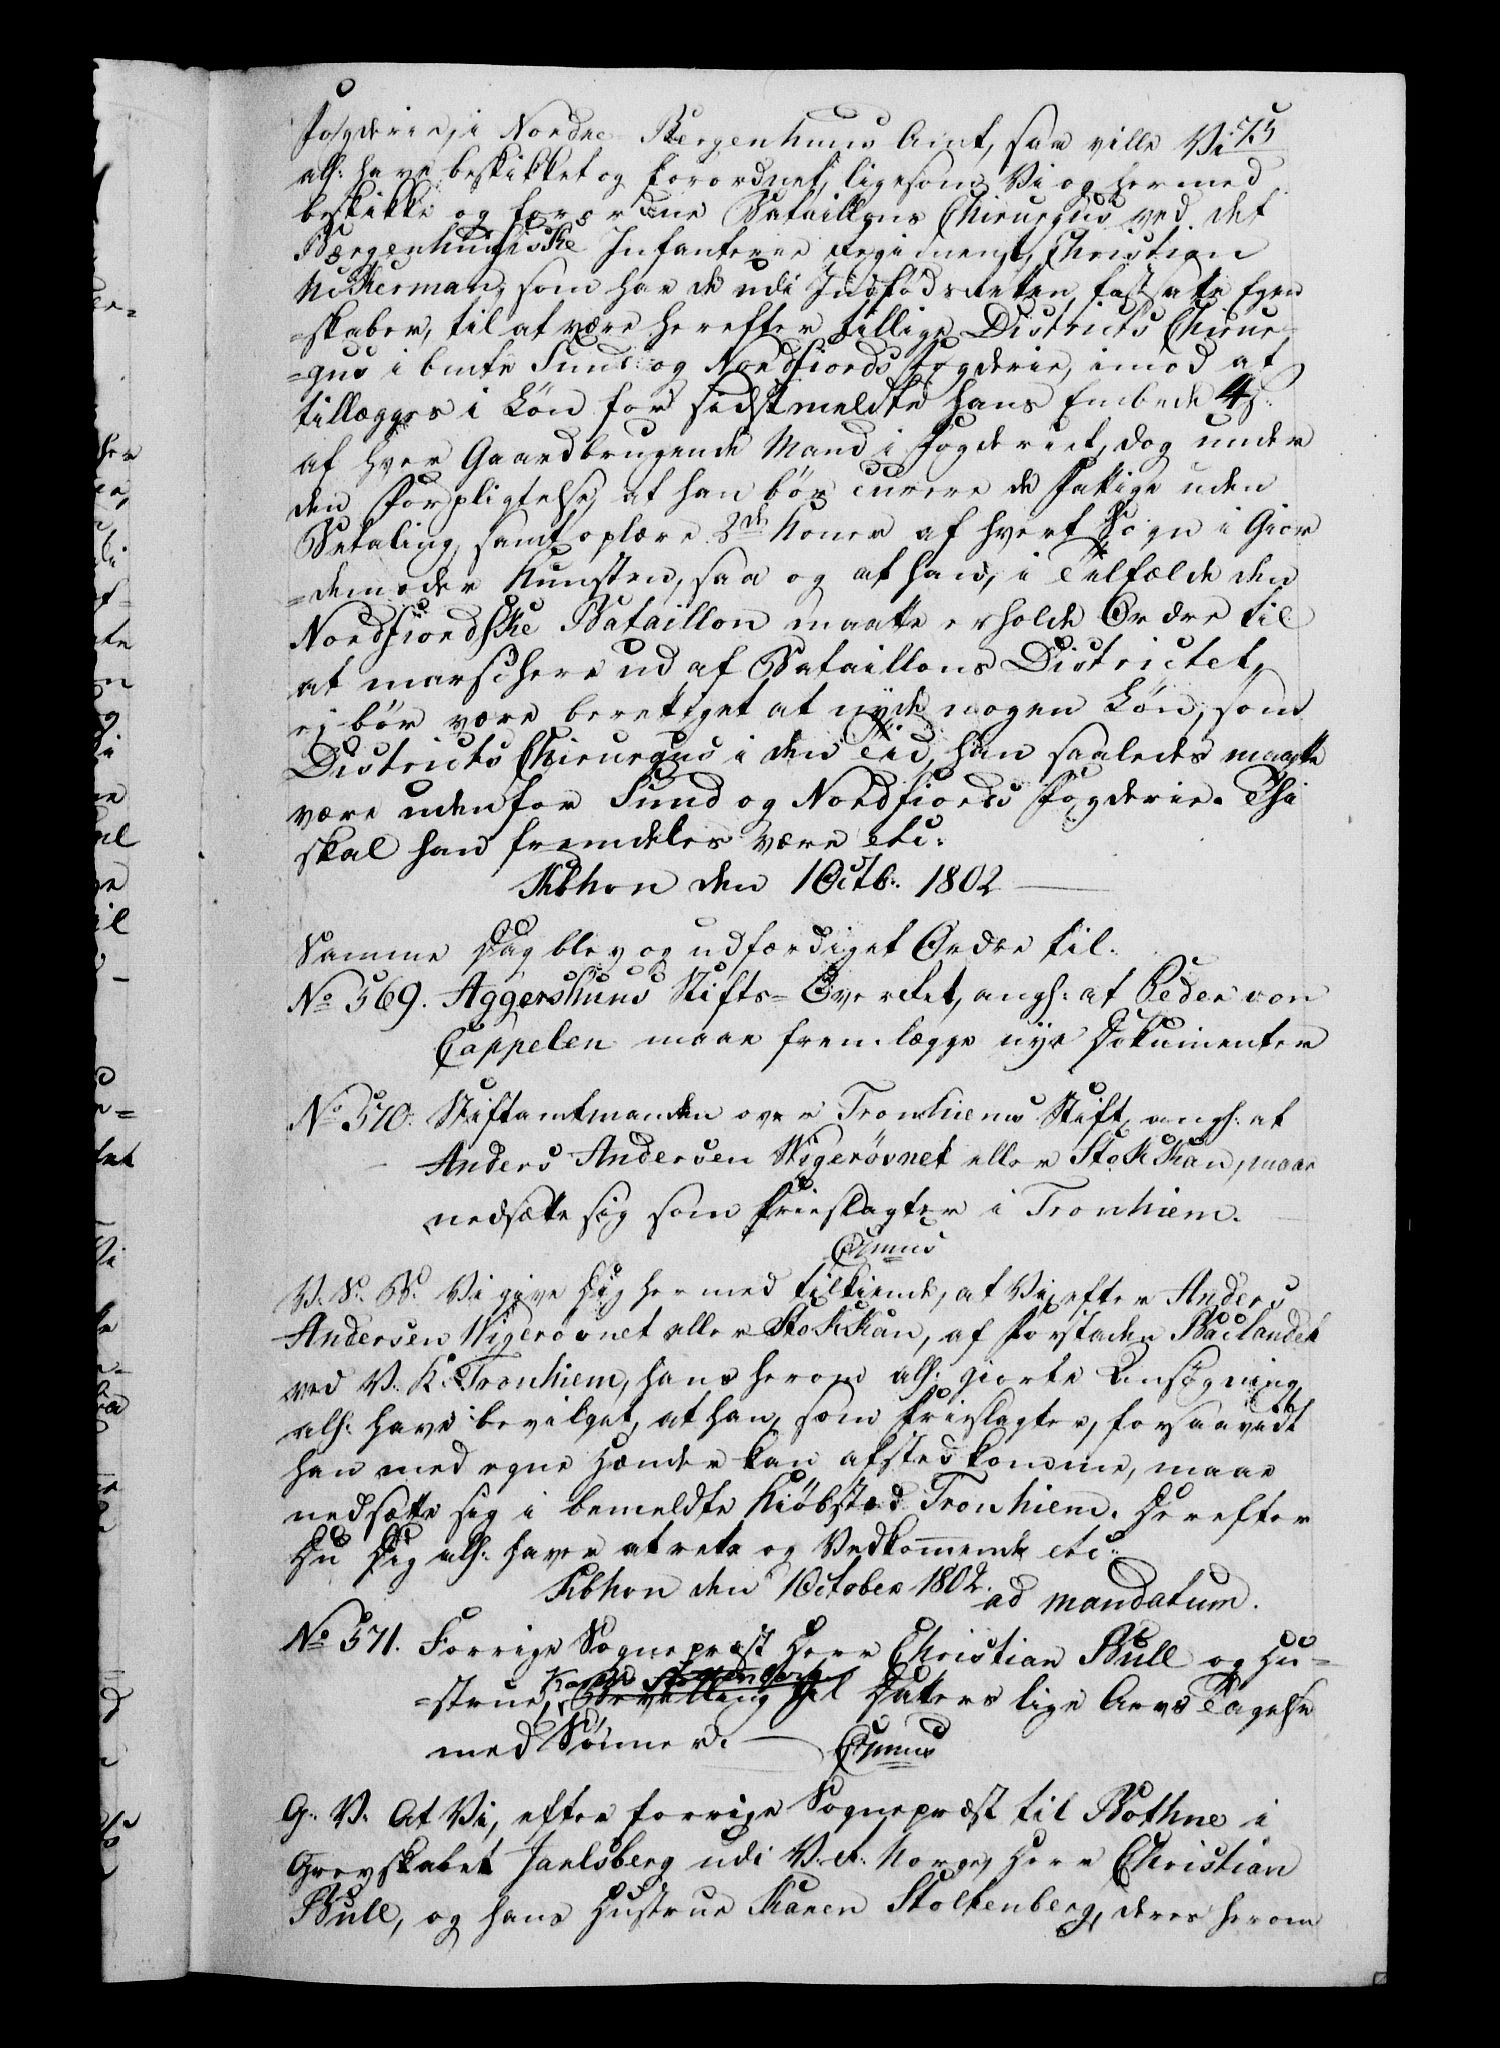 Fogderie, i Nordre Bergenhuus Amt, saa ville Vi
alh: have beskikket og forordnet, ligesom Vi og hermed
beskikke og forordne Bataillons Chirurgus ved det
Bergenhuusiske Infanterie Regiment, Christian
Mekerman, som har de udi Indfødsretten fastsatte Egen
=skaber, til at være herefter tillige Districts Chirur
=gus i bemte Sund og Nordfiords Fogderie, imod at
tillægges i Løn for sidstmeldte hans Embede 4 ß.
af hver Gaardbrugende Mand i Fogderiet, dog under
den Forpligtelse, at han bør curere de Fattige uden
Betaling, samt oplære 2de Koner af hvert Sogn i Gior
=demoder Kunsten, saa og at han, i Tilfælde den
Nordfiordske Bataillon maatte erholde Ordre til
at marschere ud af Bataillons Districtet,
ej bør være berettiget at nyde nogen Løn, som
Districts Chirurgus i den Tid, han saaledes maatte
være udenfor Sund og Nordfiords Fogderie. Thi
skal han fremdeles være etc:
Kbhvn den 1 Octb: 1802
Samme Dag blev og udfærdiget Ordre til:
No 569. Aggershuus Stifts=Overret, angh: at Peder von
Cappelen maae fremlægge nye Dokumenter
No 570. Stiftamtmanden over Tronhiems Stift, angh: at
Anders Andersen Wigerøvnet eller Stokkan, maae
nedsætte sig som Frieslagter i Tronhiem.
V. S. B. Vi give Dig hermed tilkiende, at Vi, efter Anders
Andersen Wigerøvnet eller Stokkan, af Forstaden Baclandet
ved V. K: Tronhiem, hans herom alh: giorte Ansøgning,
alh: have bevilget, at han, som Frieslagter, forsaavidt
han med egne Hænder kan afstedkomme, maae
nedsætte sig i bemeldte Kiöbsted Tronhiem. Derefter
Du Dig alh: haver at rette og Vedkommende etc:
Kbhvn den 1 October 1802.
ad mandatum.
No 571. Forrige Sognepræst Herr Christian Bull og Hu=
=strue, Bevilling til Døtres lige Arvs Tagelse
med Sønner.
G. V. At Vi, efter forrige Sognepræst til Bothne i
Grevskabet Jarlsberg udi V. R. Norge, Herr Christian
Bull, og hans Hustrue Karen Stoltenberg, deres herom